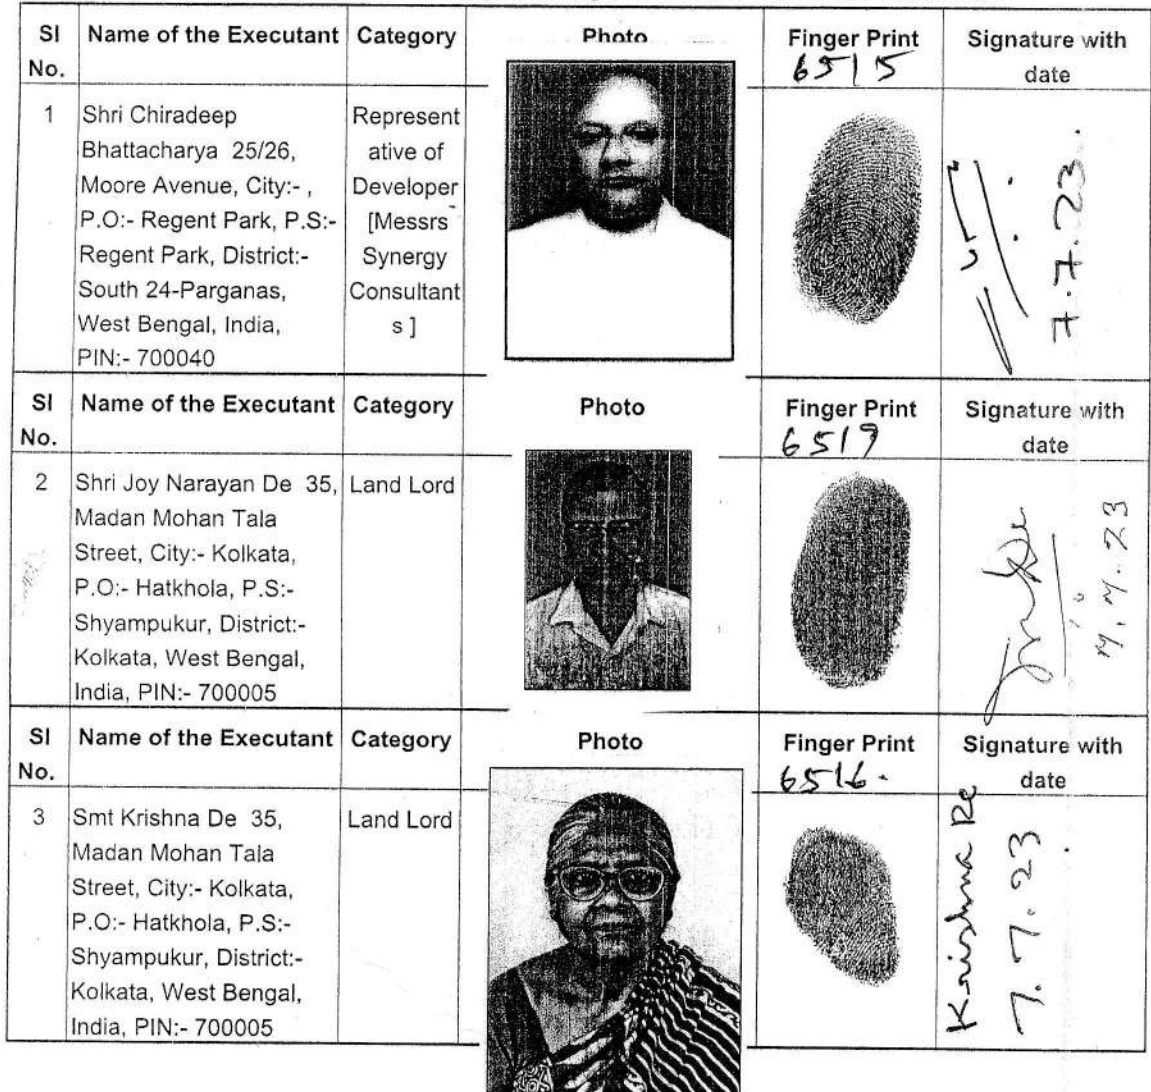 Sl No. Name of the Executant Category Photo Finger Print Signature with date
6515
1 Shri Chiradeep Bhattacharya 25/26, Moore Avenue, City:- , P.O:- Regent Park, P.S:- Regent Park, District:- South 24-Parganas, West Bengal, India, PIN:- 700040
Represent ative of Developer [Messrs Synergy Consultant s ]
7.7.23.
Sl No. Name of the Executant Category Photo Finger Print Signature with date
6519
2 Shri Joy Narayan De 35, Madan Mohan Tala Street, City:- Kolkata, P.O:- Hatkhola, P.S:- Shyampukur, District:- Kolkata, West Bengal, India, PIN:- 700005
Land Lord
7.7.23
Sl No. Name of the Executant Category Photo Finger Print Signature with date
6516.
3 Smt Krishna De 35, Madan Mohan Tala Street, City:- Kolkata, P.O:- Hatkhola, P.S:- Shyampukur, District:- Kolkata, West Bengal, India, PIN:- 700005
Land Lord
Krishna De
7.7.23